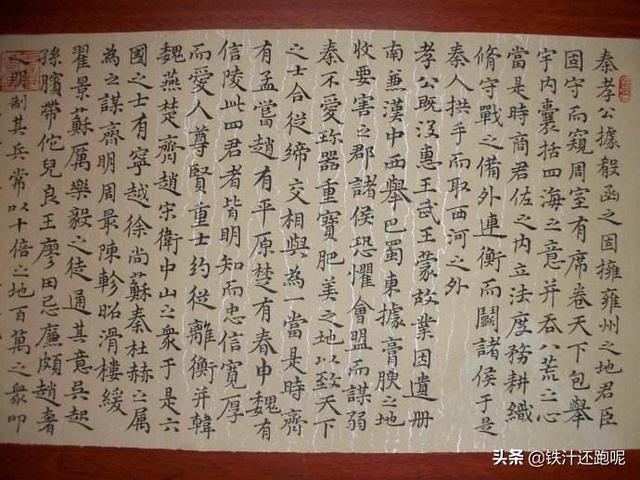 秦孝公據殽函之固擁雍州之地君臣
固守而窺周室有席卷天下包舉
宇内囊括四海之意并吞八荒之心
當是時商君佐之内立法度務耕織
脩守戰之備外連衡而鬭諸侯于是
秦人拱手而取西河之外
孝公既没惠王武王蒙故業因遺冊
南兼漢中西舉巴蜀東據膏腴之地
收要害之郡諸侯恐懼會盟而謀弱
秦不愛珎器重寶肥美之地以致天下
之士合從締交相與為一當是時齊
有孟嘗趙有平原楚有春申魏有
信陵此四君者皆明知而忠信寛厚
而愛人尊賢重士約從離衡并韓
魏燕楚齊趙宋衛中山之衆于是六
國之士有寧越徐尚蘇秦杜赫之属
為之謀齊明周最陳軫昭滑樓緩
翟景蘇厲樂毅之徒通其意吳起
孫臏帶佗兒良王廖田忌廉頗趙奢
之朋制其兵常以十倍之地百萬之衆叩
头条 @铁汁还跑呢